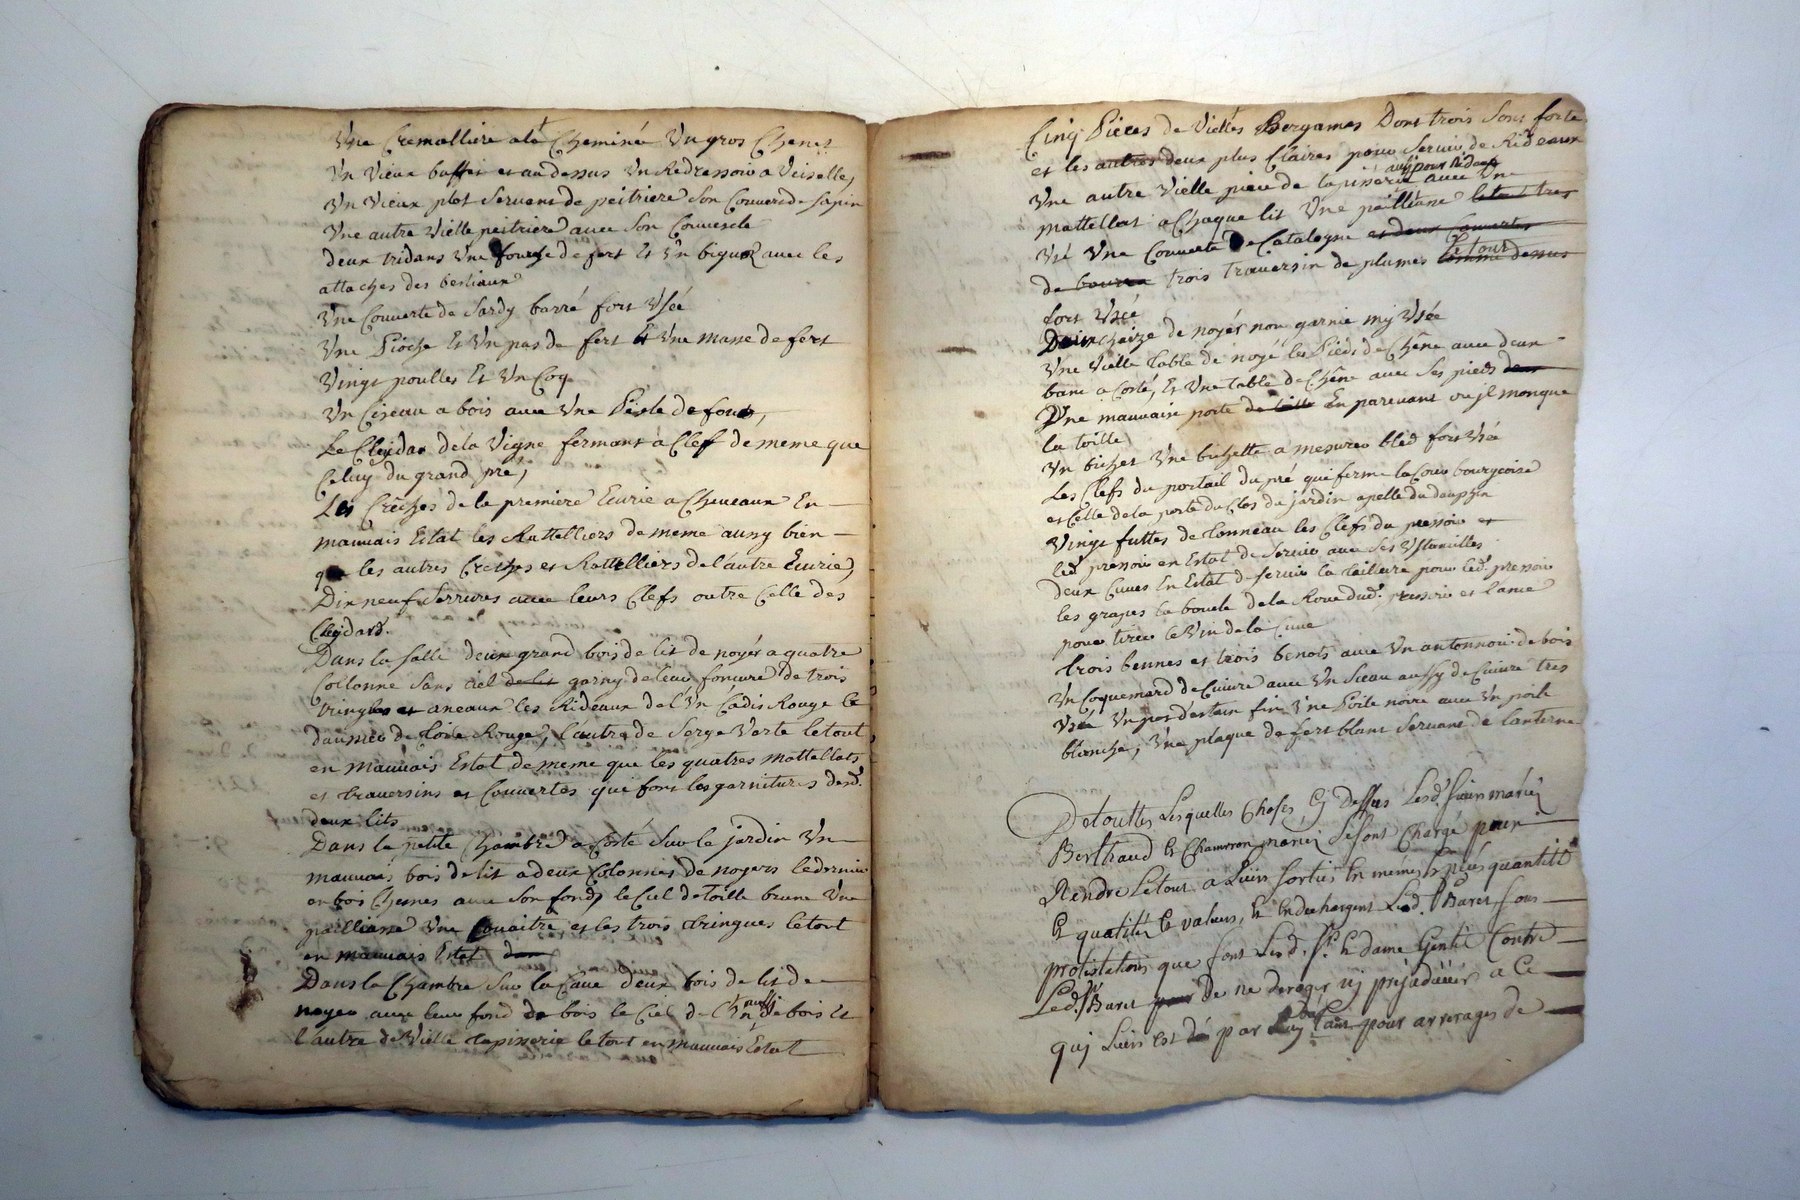 Une Cremalliere ala Cheminé Un gros Chenet
Un Vieux buffet et au dessus Un Redressoir a Veiselle,
Un Vieux plot Servant de peitriere Son Couvert de sapin
Une autre Vielle peitriere avec Son Couvercle
deux tridans Une fourche de fert Et Un bigoz avec les
attaches des bestiaux
Une Couverte de Sardy barré fort Usée
Une Pioche Et Un pas de fert Et Une masse de fert
Vingt poulles Et Un Coq
Un Ciseau a bois avec Une Pesle de four,
Le Cleydar dela Vigne fermant a Clef de meme que
Celuy du grand pré,
Les Crêches de la premiere Ecurie a Chevaux En
mauvais Estat les Rattelliers de meme aussy bien
que les autres Creches et Rattelliers de l'autre Ecurie,
Dix neuf Serrures avec leurs Clefs outre Celle des
Cleydard.
Dans la Salle deux grand bois de lit de noyér a quatre
Collonne Sans ciel de lit garny de leur foncure de trois
tringles et aneaux les Rideaux de l'Un Cadis Rouge le
de toile Rouge, l'autre de Serge Verte le tout
en Mauvais Estat de meme que les quatres mattellats
et traversins et Couvertes qui font les garnitures desd.
deux lits
Dans la petite Chambre a Costé Sur le jardin Un
mauvais bois de lit a deux Colonnes de noyers le dernier
en bois Chenes avec Son fond, le Ciel de Toille brune Une
paillasse Une Couaitre et les trois tringues le tout
en mauvais Estat
Dans la Chambre Sur la Cave deux bois de lit de
noyer avec leur fond de bois le Ciel de l'Un aussy de bois Et
l'autre de Vielle tapisserie le tout en Mauvais Estat
Cinq Pieces de Vielles Bergames Dont trois Sont forte
et les autres deux plus Claires pour Servir de Rideaux
Une autre Vielle piece de tapisserie aussy pour Rideaux avec Une
mattellat a Chaque lit Une pailliasse le tout tres
Usé Une Couverte De Catalogne et deux Couvertes
de bourre trois Traversin de plumes le tout comme dessus
fort Usée
chaize de noyér non garnie my Usée
Une Vielle Table de noyé les Pieds de Chêne avec deux
banc a Costé, Et Une Table de Chêne avec Ses pieds
Une mauvaise porte de toille En parevant ou jl monque
la toille
Un bichet Une bichette a mesurer bled fort Usée
Les Clefs du portail du pré qui ferme la Cour bourgeoise
et Celle de la porte du Clos du jardin apelle du dauphin
Vingt futtes de Tonneau les Clefs du pressoir et
led. pressoir en Estat de Servir avec Ses Ustancilles
deux Cuves En Estat de Servir la tailleure pour led. pressoir
les grapes la boucle de la Roue dud. pressoir et l'ance
pour tirer le Vin de la Cuve
trois bennes et trois benots avec Un antonnoir de bois
Un Coquemard de Cuivre avec Un Sceau aussy de Cuivre tres
Usée Un pot d'estain fin Une Poile noire avec Un poile
blanche, Une plaque de fert blanc Servant de lanterne
De touttes Lesquelles Choses Cy Dessus Lesd. Sieurs mariéz
Berthaud Et Chamvron mariéz Se Sont Chargé pour
Rendre Le tout a Leurs Sortie En mémes Especes quantité
Et quallité Et valeur, Et En dechargent Led. Sr. Baret Sous
protestations que font Lesd. Sr. Et dame Gentil Contre
Led. Sr. Baret De ne deroger nj préjudicier a Ce
quj Leurs est dû par Luy pour arrerages de